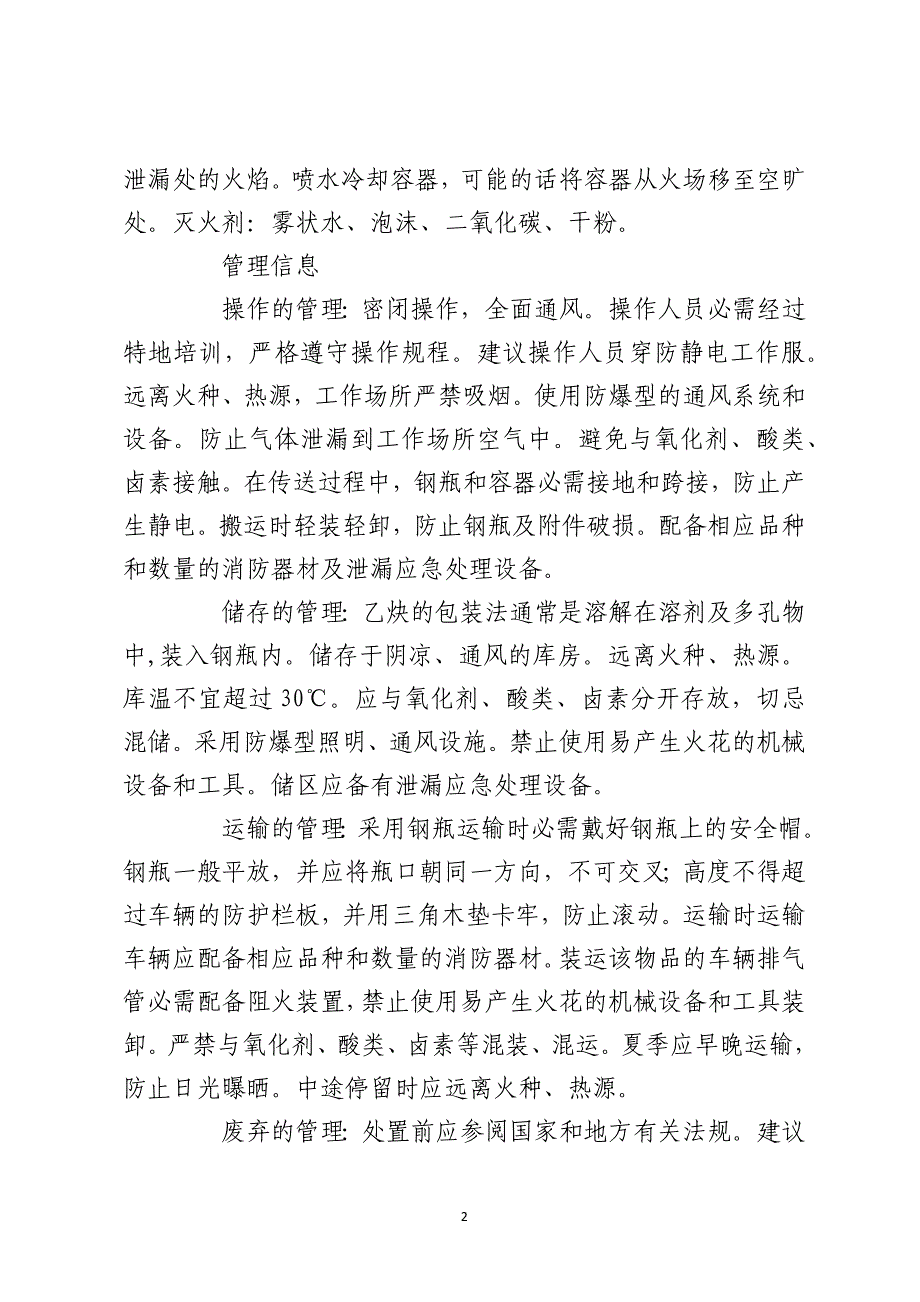 泄漏处的火焰。喷水冷却容器，可能的话将容器从火场移至空旷
处。灭火剂：雾状水、泡沫、二氧化碳、干粉。
管理信息
操作的管理：密闭操作，全面通风。操作人员必需经过
特地培训，严格遵守操作规程。建议操作人员穿防静电工作服。
远离火种、热源，工作场所严禁吸烟。使用防爆型的通风系统和
设备。防止气体泄漏到工作场所空气中。避免与氧化剂、酸类、
卤素接触。在传送过程中，钢瓶和容器必需接地和跨接，防止产
生静电。搬运时轻装轻卸，防止钢瓶及附件破损。配备相应品种
和数量的消防器材及泄漏应急处理设备。
储存的管理：乙炔的包装法通常是溶解在溶剂及多孔物
中,装入钢瓶内。储存于阴凉、通风的库房。远离火种、热源。
库温不宜超过 30℃。应与氧化剂、酸类、卤素分开存放，切忌
混储。采用防爆型照明、通风设施。禁止使用易产生火花的机械
设备和工具。储区应备有泄漏应急处理设备。
运输的管理：采用钢瓶运输时必需戴好钢瓶上的安全帽。
钢瓶一般平放，并应将瓶口朝同一方向，不可交叉；高度不得超
过车辆的防护栏板，并用三角木垫卡牢，防止滚动。运输时运输
车辆应配备相应品种和数量的消防器材。装运该物品的车辆排气
管必需配备阻火装置，禁止使用易产生火花的机械设备和工具装
卸。严禁与氧化剂、酸类、卤素等混装、混运。夏季应早晚运输，
防止日光曝晒。中途停留时应远离火种、热源。
废弃的管理：处置前应参阅国家和地方有关法规。建议
2